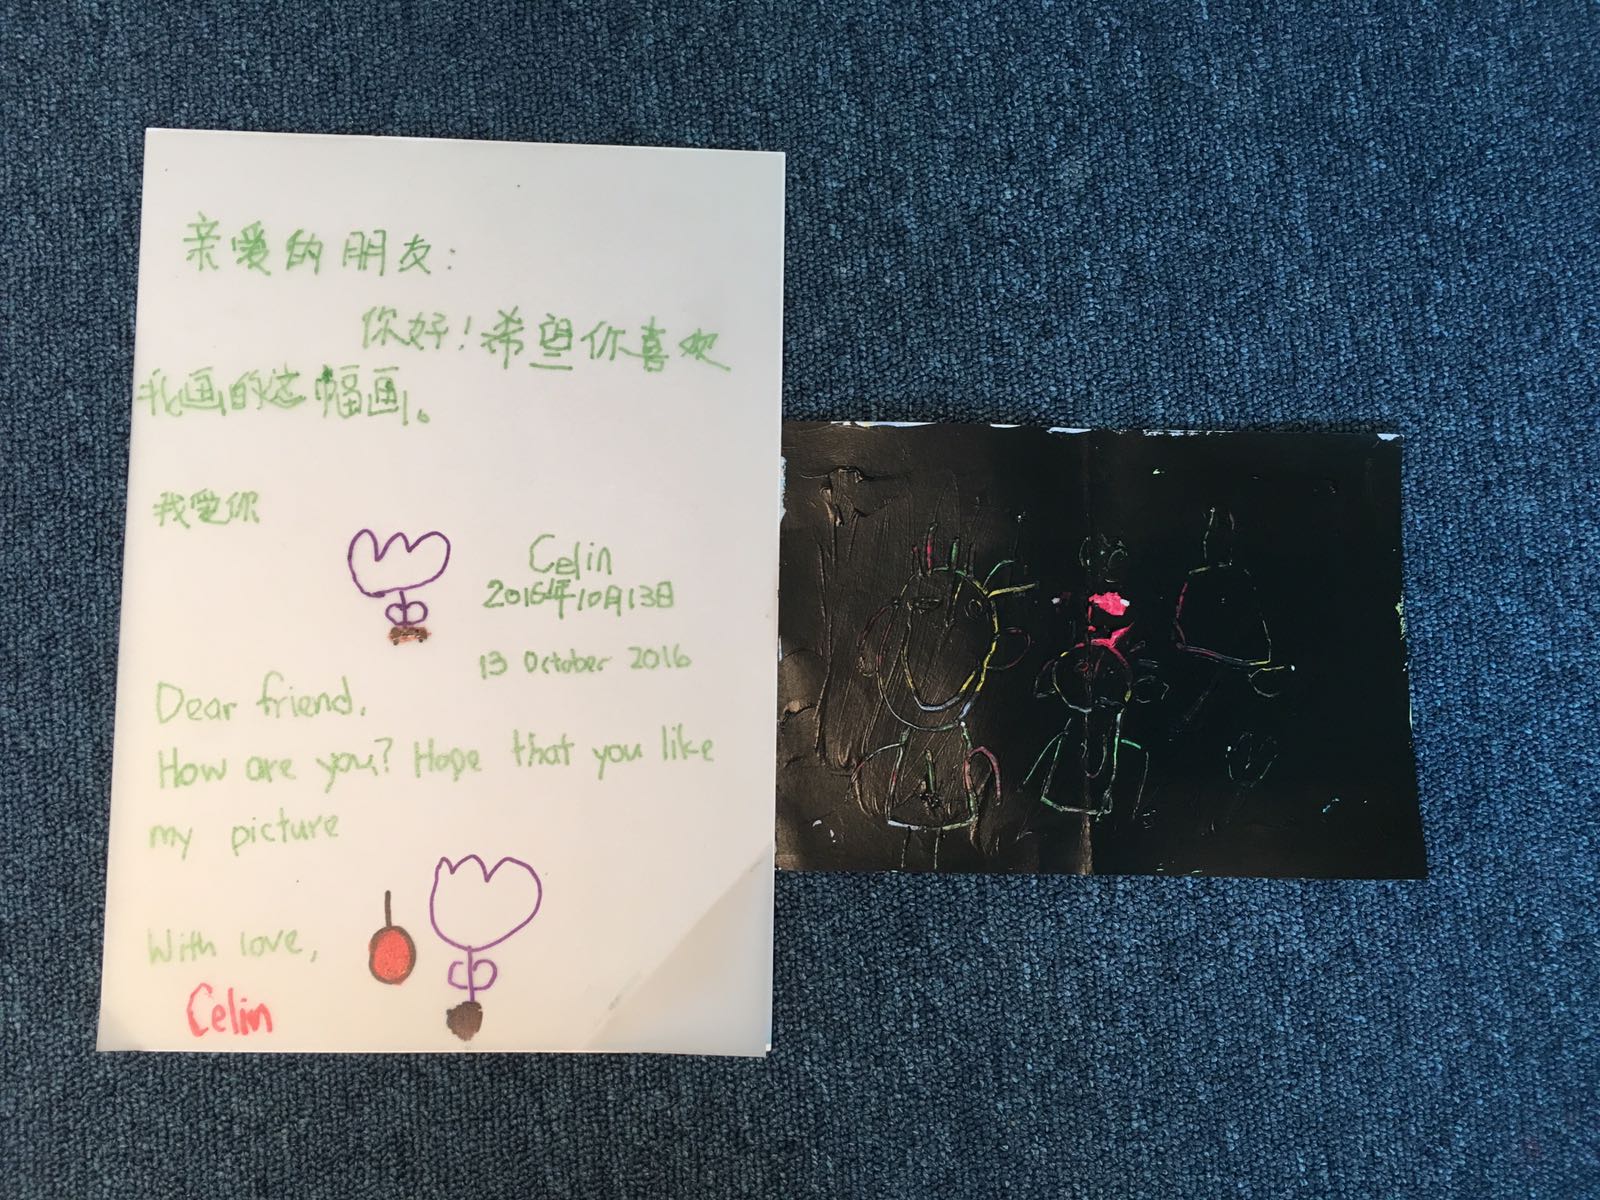 亲爱的朋友:
你好!希望你喜欢
我画的这幅画。
我爱你
Celin
2016年10月13日
13 October 2016
Dear friend,
How are you? Hope that you like
my picture
With love,
Celin